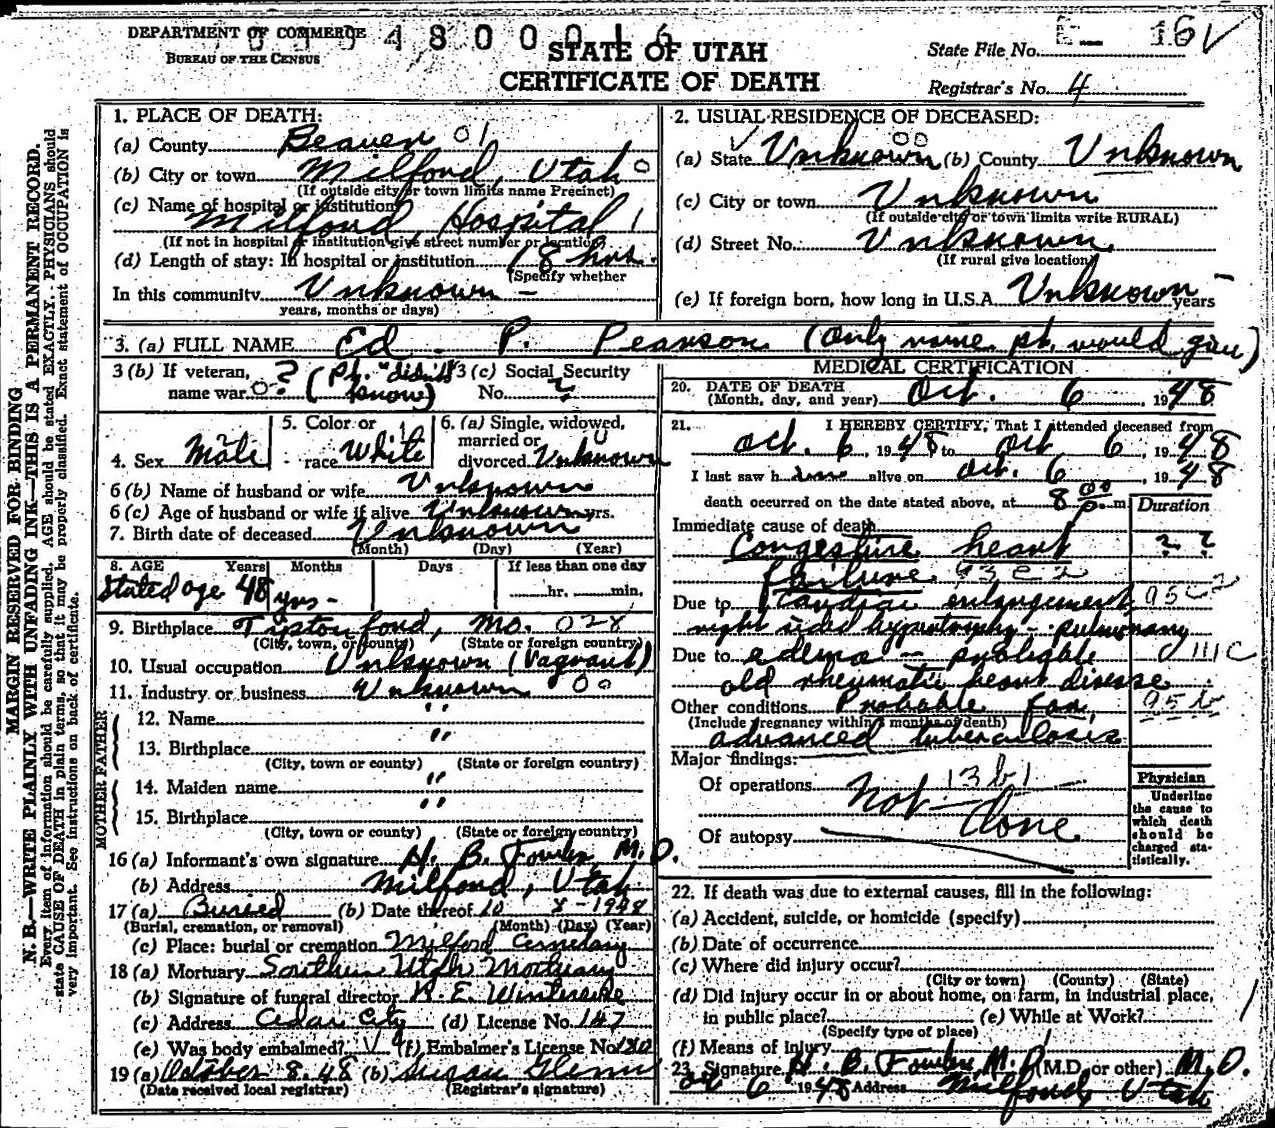 DEPARTMENT OF COMMERCE
BUREAU OF THE CENSUS
4800016
STATE OF UTAH
CERTIFICATE OF DEATH
State File No. E- 16
Registrar's No. 4
MARGIN RESERVED FOR BINDING
N. B.—WRITE PLAINLY WITH UNFADING INK—THIS IS A PERMANENT RECORD.
Every item of information should be carefully supplied. AGE should be stated EXACTLY. PHYSICIANS should
state CAUSE OF DEATH in plain terms, so that it may be properly classified. Exact statement of OCCUPATION is
very important. See instructions on back of certificate.
1. PLACE OF DEATH:
(a) County Beaver 01
(b) City or town Milford, Utah 0
(If outside city or town limits name Precinct)
(c) Name of hospital or institution
Milford, Hospital 1
(If not in hospital or institution give street number or location)
(d) Length of stay: In hospital or institution 18 hrs.
(Specify whether
In this community Unknown -
years, months or days)
2. USUAL RESIDENCE OF DECEASED:
00
(a) State Unknown (b) County Unknown
(c) City or town Unknown
(If outside city or town limits write RURAL)
(d) Street No. Unknown
(If rural give location)
(e) If foreign born, how long in U.S.A. Unknown years
3. (a) FULL NAME Ed P. Pearson (Only name pt. would give)
3 (b) If veteran, name war 0 ? (Pt. "didn't know)
3 (c) Social Security No. ?
4. Sex Male
5. Color or race White
6. (a) Single, widowed, married or divorced Unknown
6 (b) Name of husband or wife Unknown
6 (c) Age of husband or wife if alive Unknown yrs.
7. Birth date of deceased Unknown
(Month) (Day) (Year)
8. AGE Years Months Days If less than one day
Stated age 48 yrs - hr. min.
9. Birthplace Tiptonford, Mo. 028
(City, town, or county) (State or foreign country)
10. Usual occupation Unknown (Vagrant)
11. Industry or business Unknown 00
FATHER
12. Name "
13. Birthplace "
(City, town or county) (State or foreign country)
MOTHER
14. Maiden name "
15. Birthplace "
(City, town or county) (State or foreign country)
16 (a) Informant's own signature H. B. Fowler, M. D.
(b) Address Milford, Utah
17 (a) Buried (b) Date thereof 10 8-1948
(Burial, cremation, or removal) (Month) (Day) (Year)
(c) Place: burial or cremation Milford Cemetary
18 (a) Mortuary Southern Utah Mortuary
(b) Signature of funeral director
(c) Address Cedar City (d) License No. 147
(e) Was body embalmed? (f) Embalmer's License No. 130
19 (a) October 8. 48 (b) Susan Glenn
(Date received local registrar) (Registrar's signature)
MEDICAL CERTIFICATION
20. DATE OF DEATH Oct. 6, 1948
(Month, day, and year)
21. I HEREBY CERTIFY, That I attended deceased from
Oct. 6, 1948 to Oct 6, 1948
I last saw him alive on Oct. 6, 1948
death occurred on the date stated above, at 8 00 p. m.
Duration
Immediate cause of death
Congestive heart ? ?
failure
Due to Cardiac enlargement,
right sided hypertrophy - pulmonary
Due to edema - probable 111C
old rheumatic heart disease
Other conditions Probable far 95 b
(Include pregnancy within 3 months of death)
advanced tuberculosis
Major findings:
Of operations 13b1
Not done
Of autopsy
Physician
Underline
the cause to
which death
should be
charged sta-
tistically.
22. If death was due to external causes, fill in the following:
(a) Accident, suicide, or homicide (specify)
(b) Date of occurrence
(c) Where did injury occur?
(City or town) (County) (State)
(d) Did injury occur in or about home, on farm, in industrial place,
in public place? (e) While at Work?
(Specify type of place)
(f) Means of injury
23. Signature H. B. Fowler, M. D. (M.D. or other) M. D.
Oct 6 1948 Address Milford, Utah